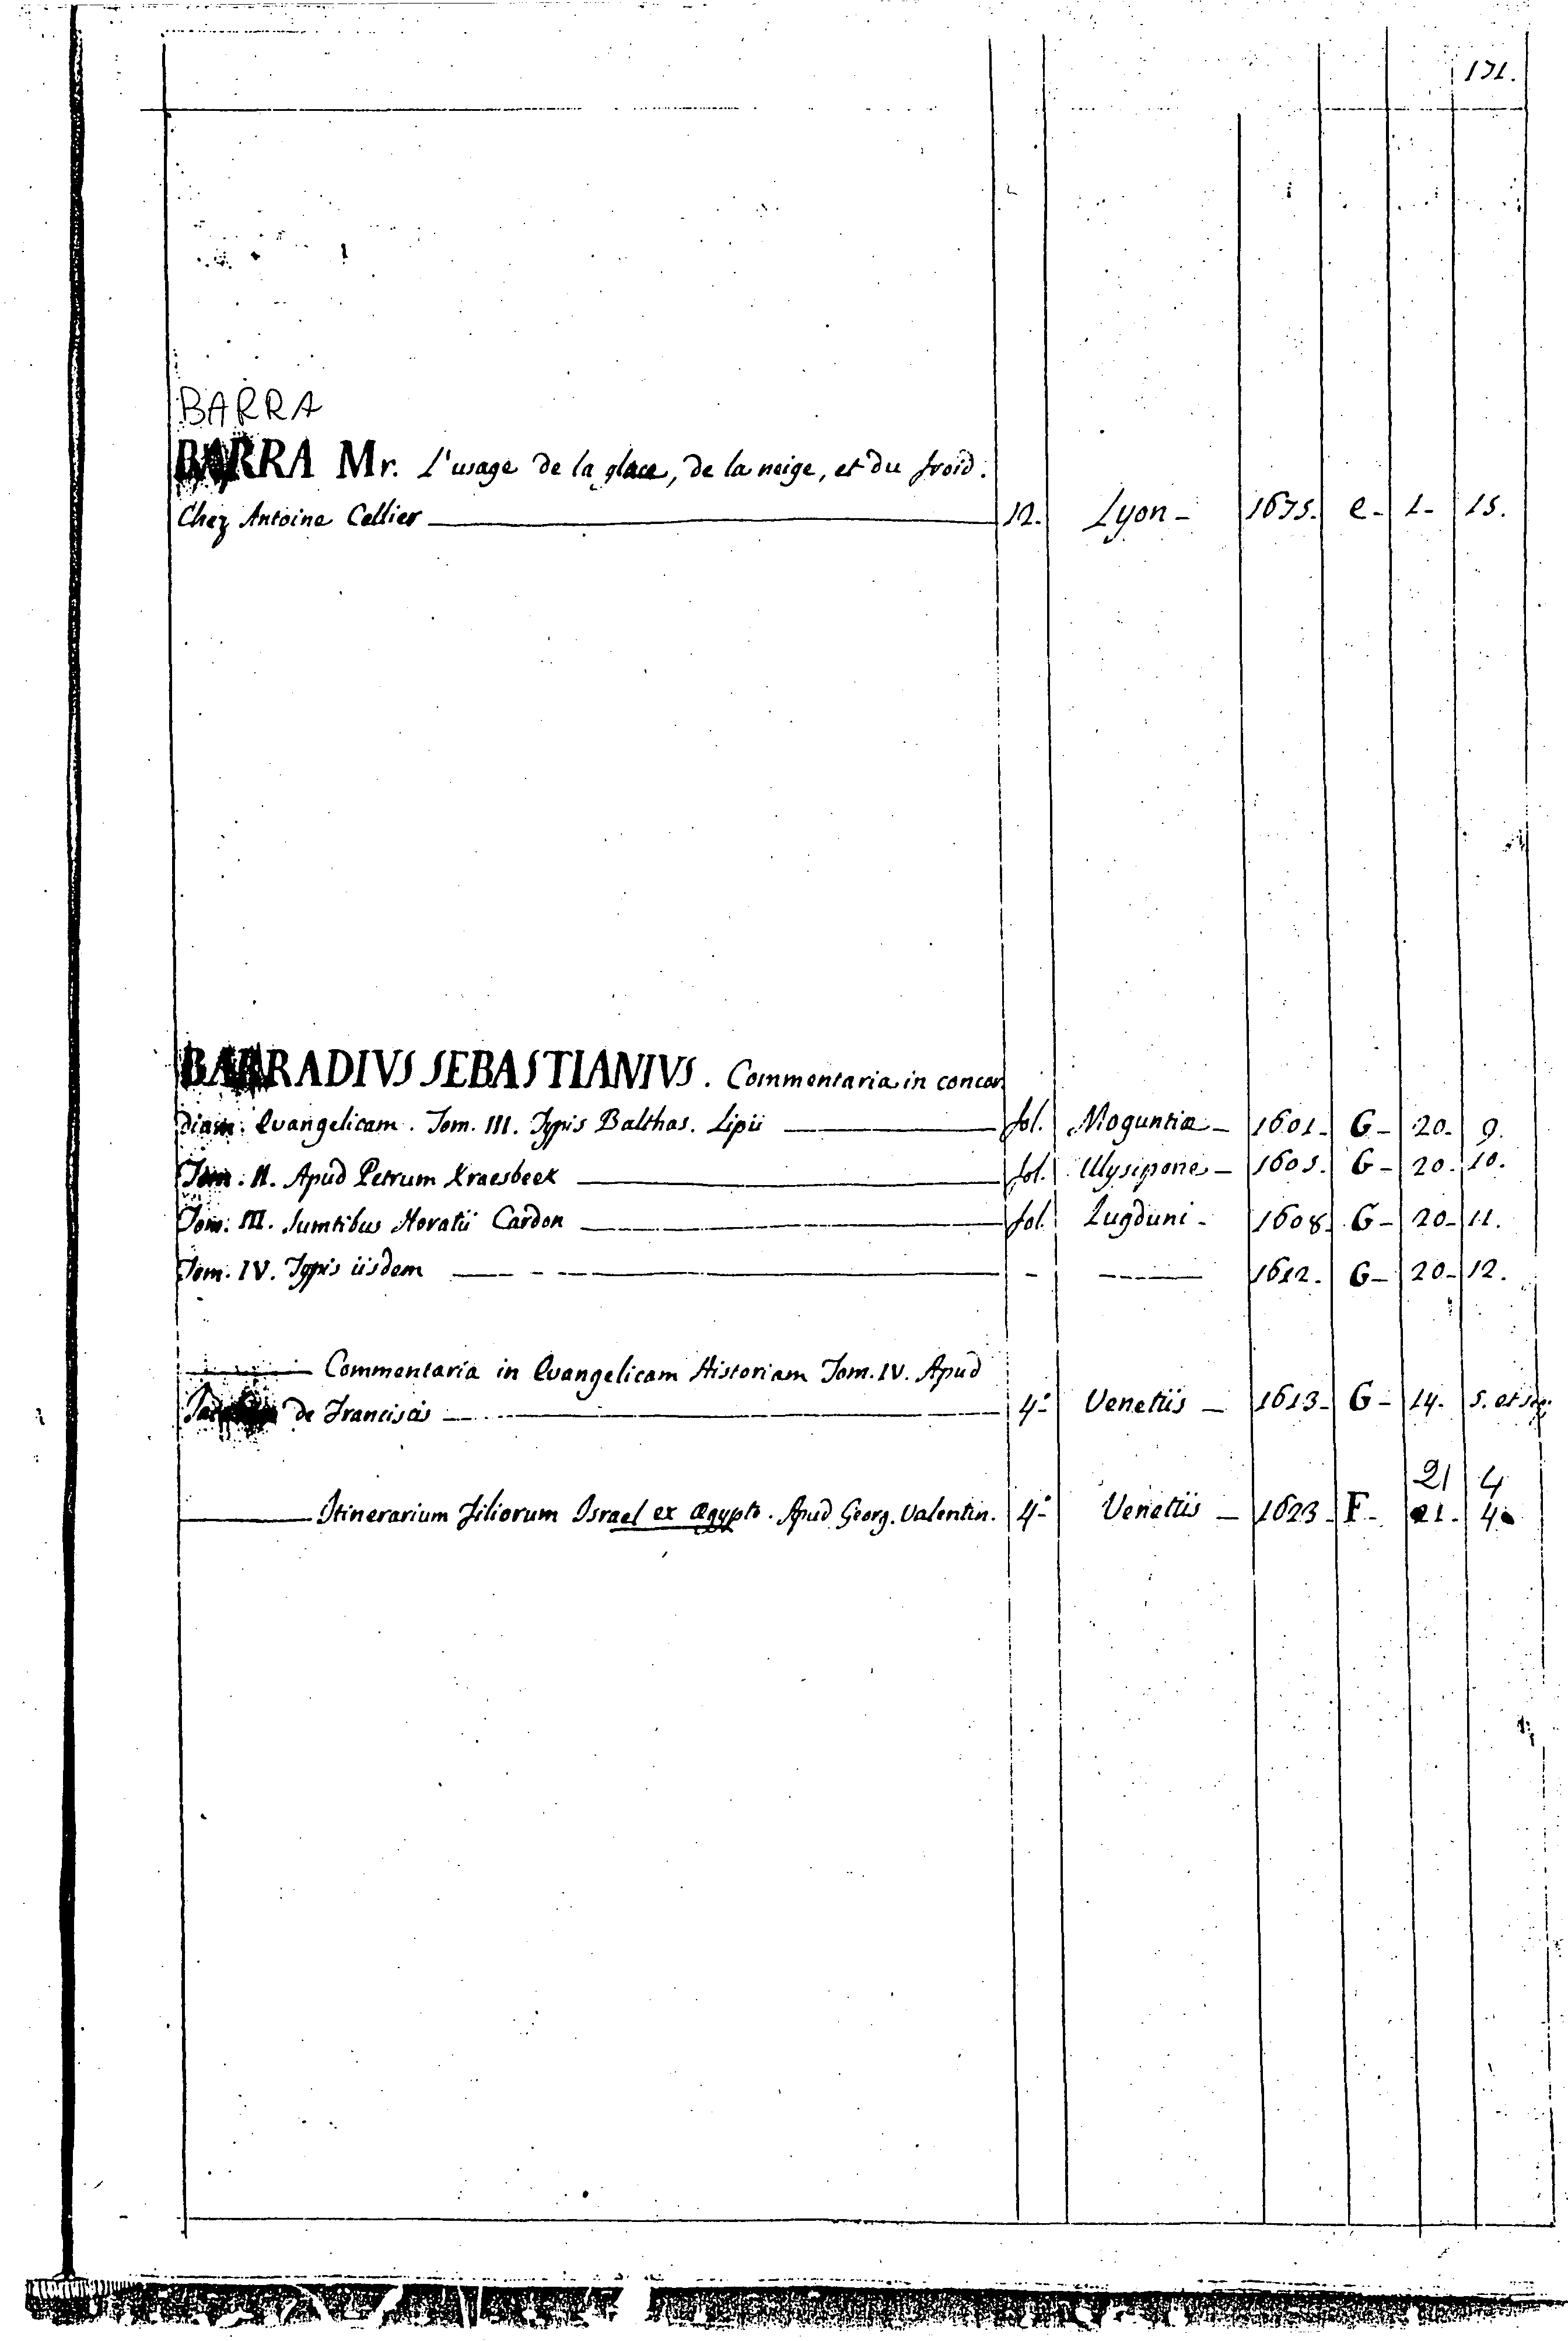 171.
BARRA
BARRA Mr. L'usage de la glace, de la neige, et du froid.
Chez Antoine Cellier 12. Lyon - 1675. e - 1 - 15.
BARRADIVS SEBASTIANIVS. Commentaria in concor
diam: Evangelicam. Tom. III. Typis Balthas. Lipii fol. Moguntiæ - 1601 - G - 20 - 9.
Tom: II. Apud Petrum Kraesbeek fol. Ulysipone - 1605. G - 20 - 10.
Tom: III. Sumtibus Horatii Cardon fol. Lugduni - 1608. G - 20 - 11.
Tom. IV. Typis iisdem - 1612. G - 20 - 12.
Commentaria in Evangelicam Historiam Tom. IV. Apud
de Franciscis 4º Venetiis - 1613 - G - 14. 5. et seq.
21 4
Itinerarium Filiorum Israel ex Ægypto. Apud Georg. Valentin. 4º Venetiis - 1623 - F - 21. 4